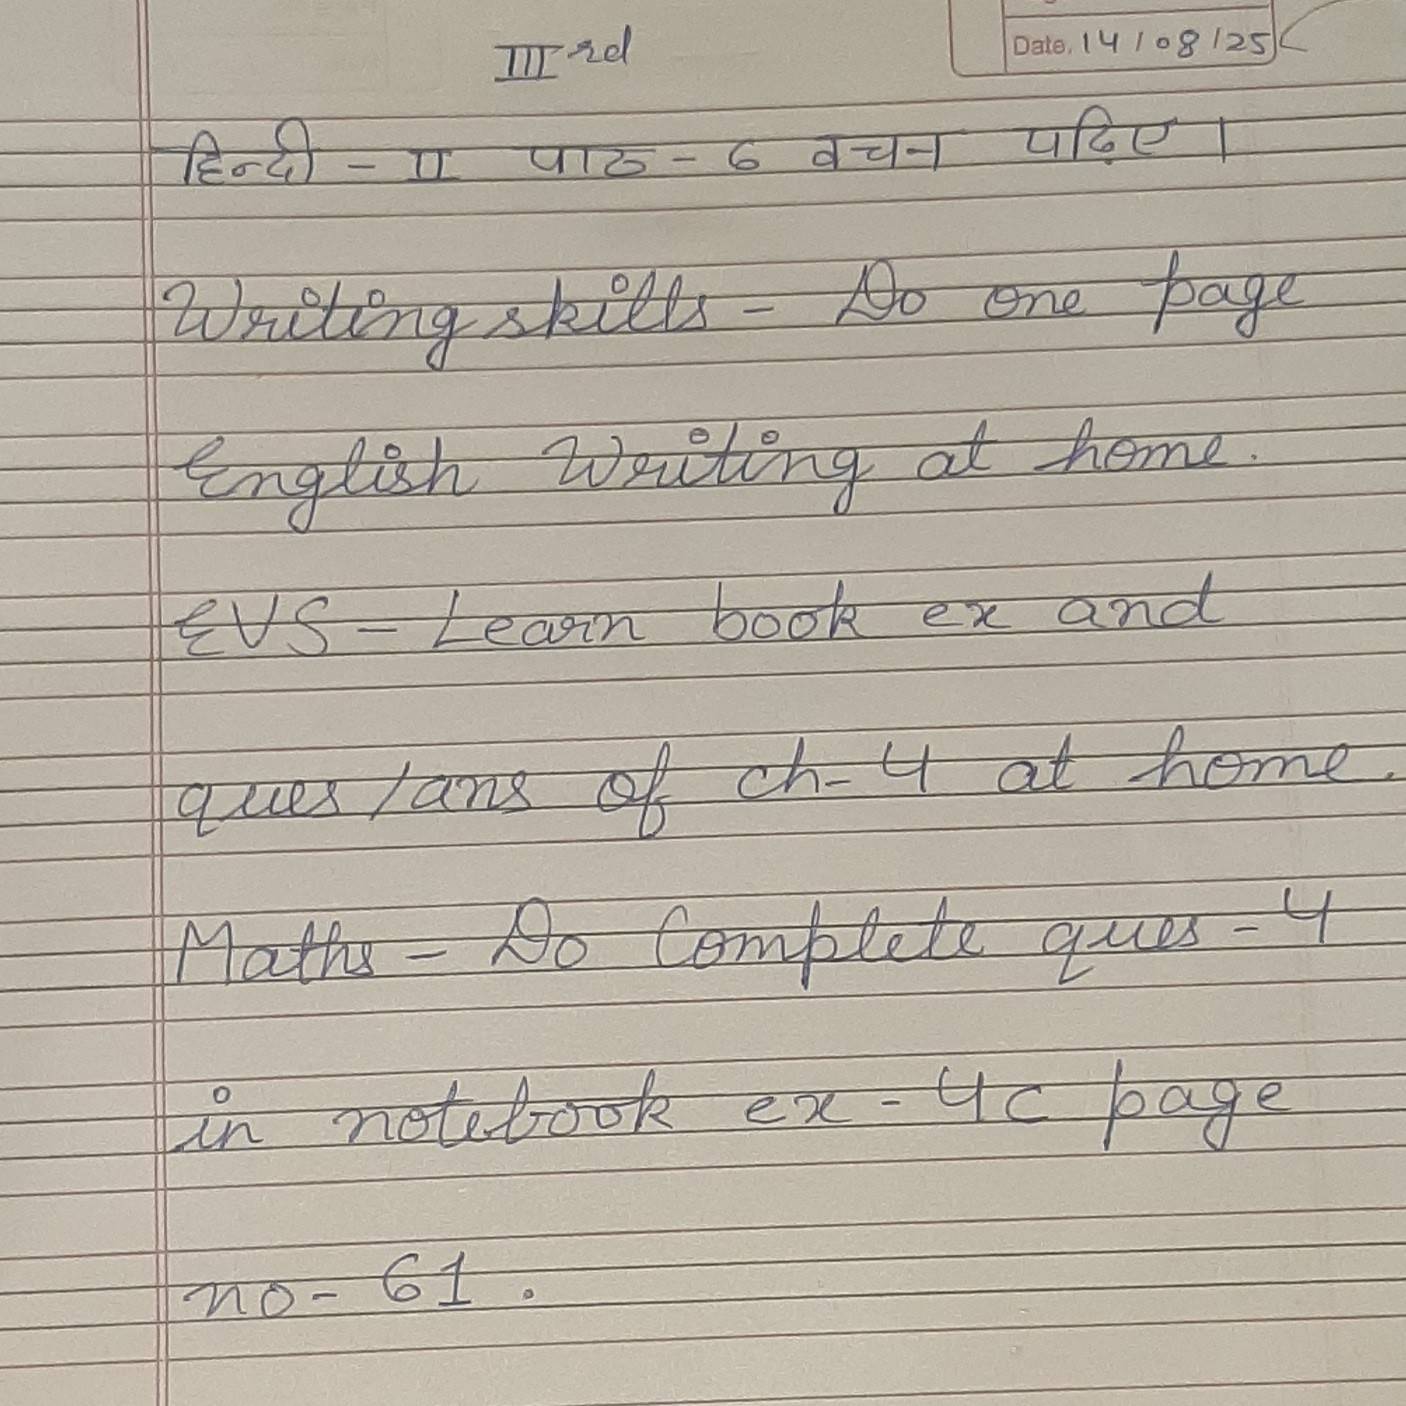 IIIrd
Date. 14/08/25
हिन्दी - II पाठ - 6 वचन पढ़िए।
Writing skills - Do one page
English Writing at home.
EVS - Learn book ex and
ques/ans of ch-4 at home.
Maths - Do Complete ques - 4
in notebook ex - 4c page
no - 61.